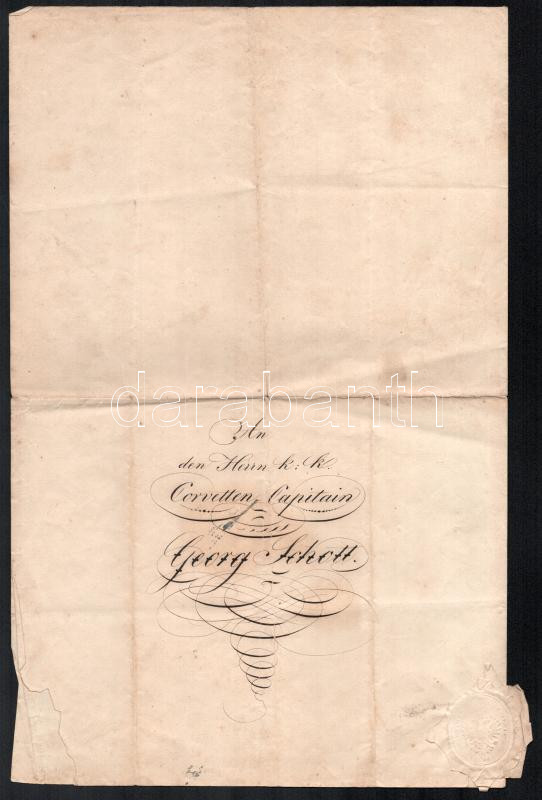 darabanth
An
den Herrn k: k:
Corvetten, Capitain
Georg Schott.